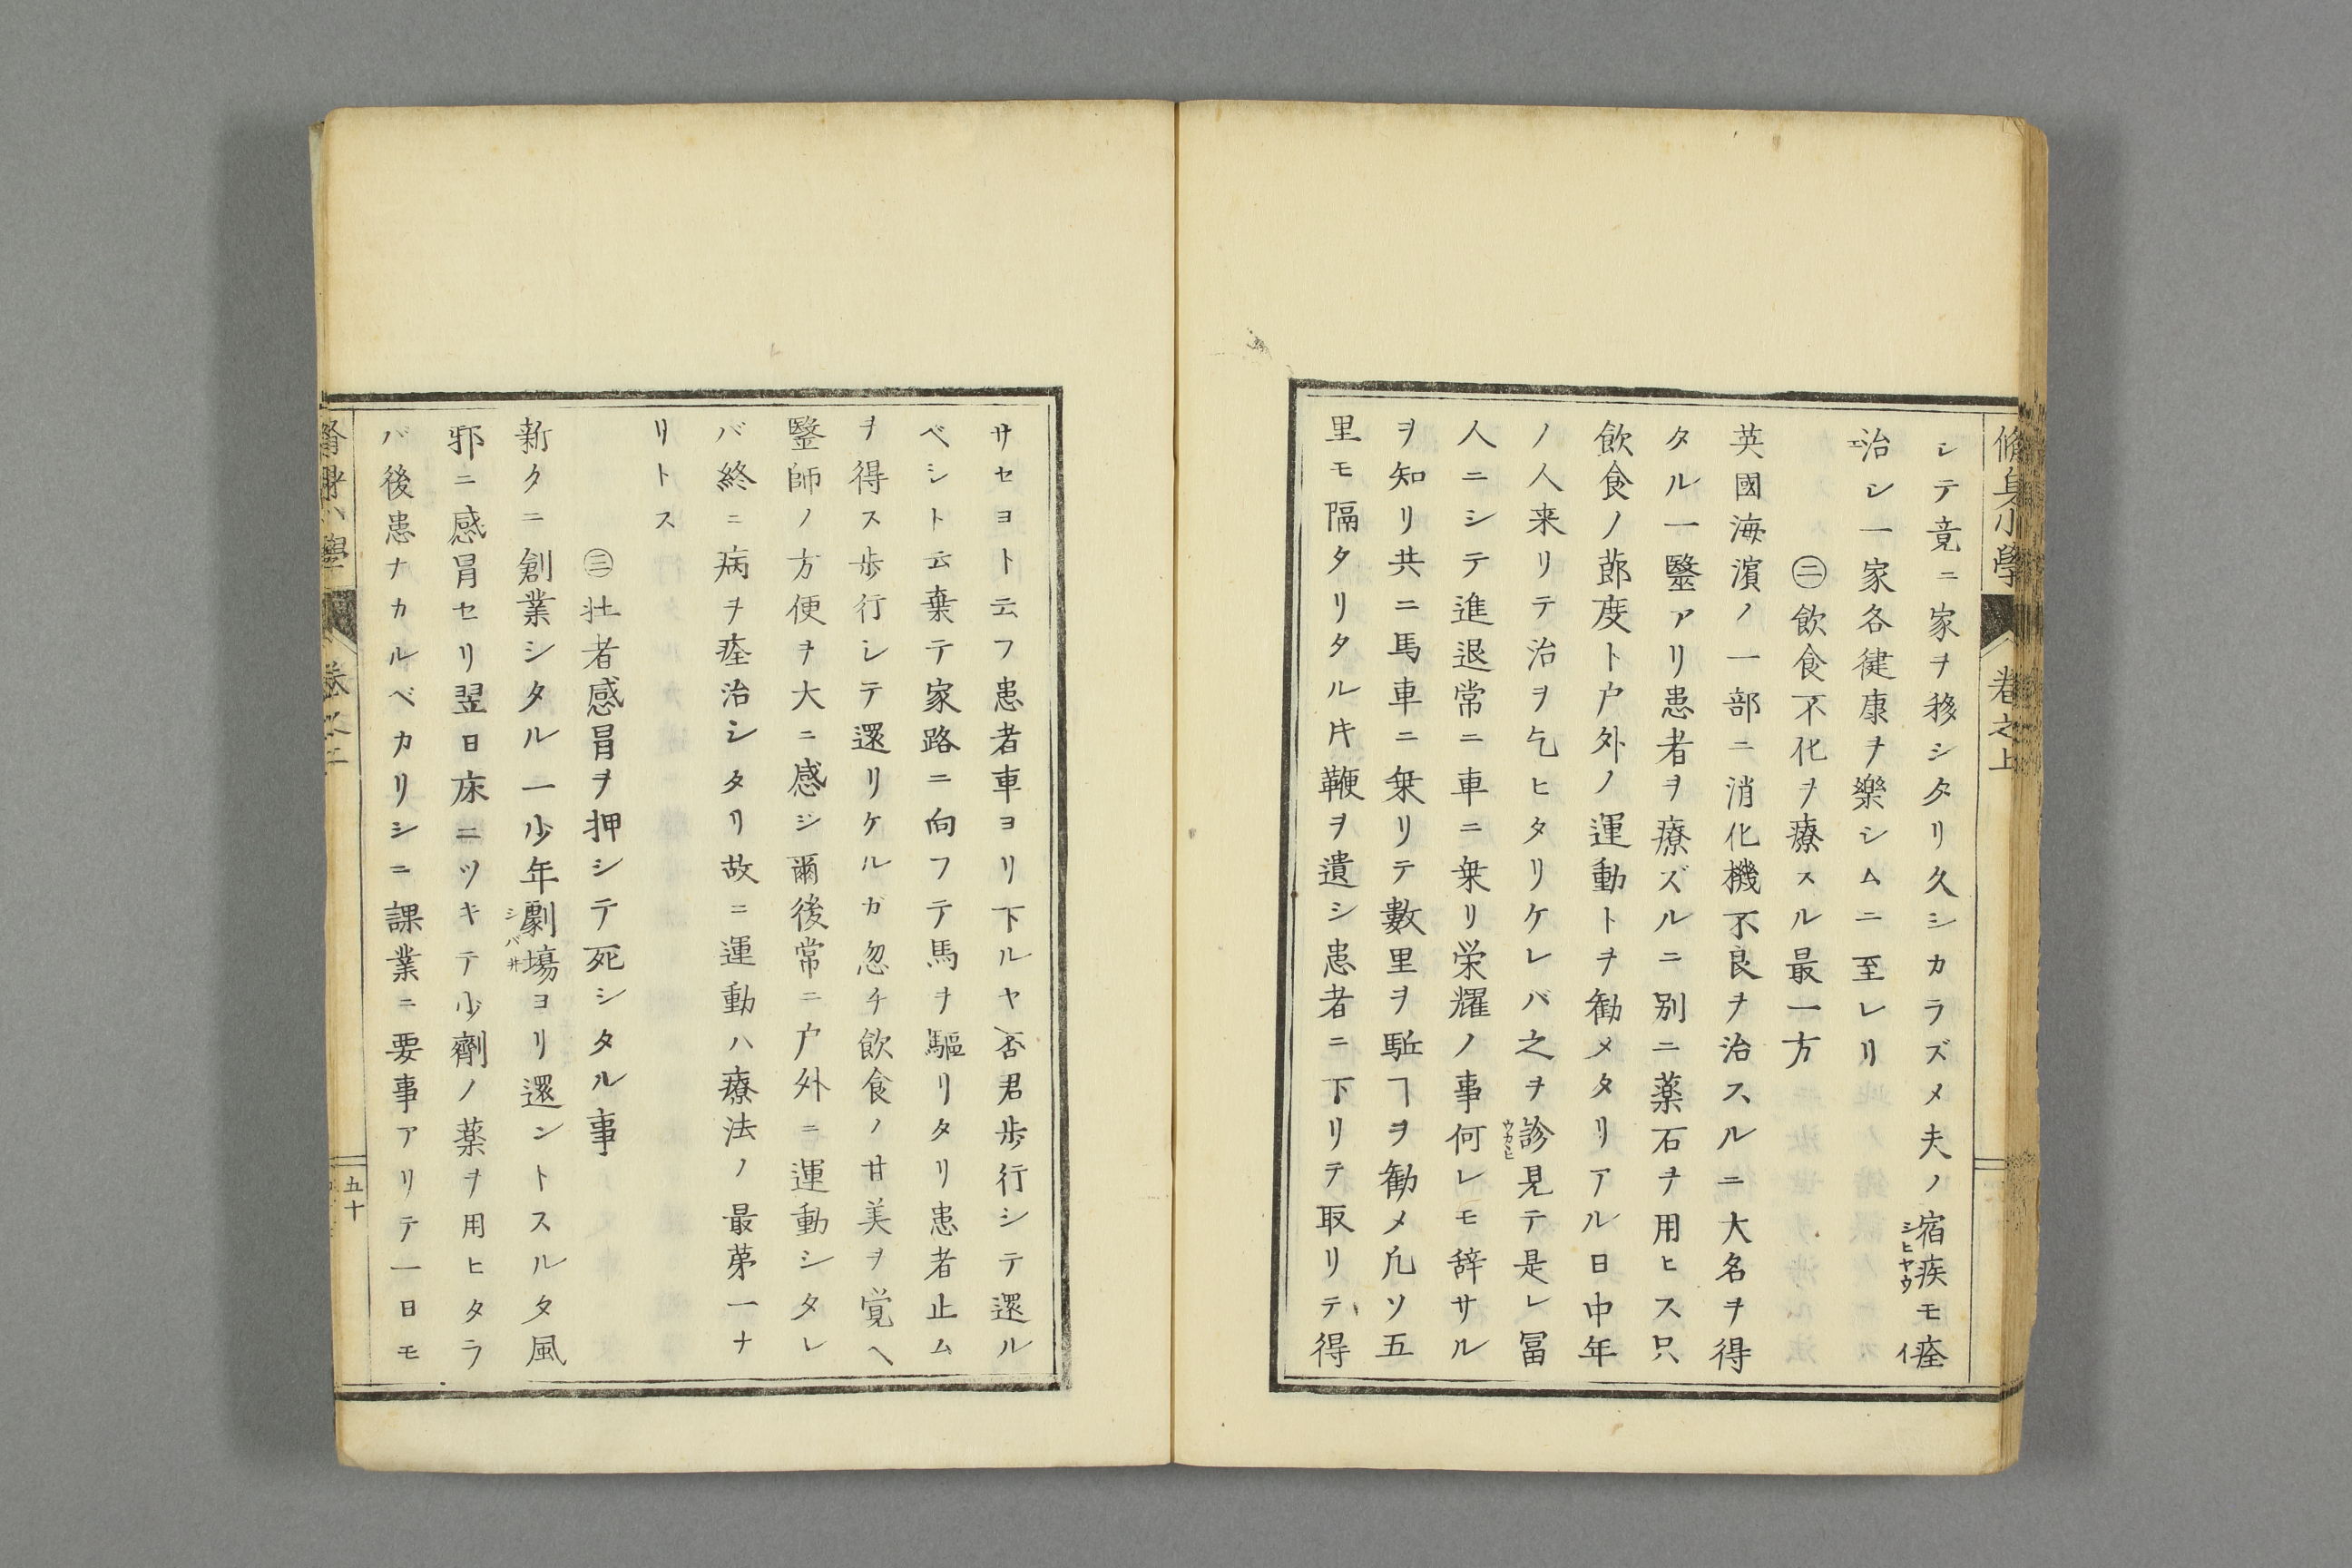 脩身小學 巻之上
シテ竟ニ家ヲ移シタリ久シカラズメ夫ノ宿疾モ痊
シヒヤウ
イ
治シ一家各健康ヲ樂シムニ至レリ
エ
㊁飲食不化ヲ療スル最一方
英國海濱ノ一部ニ消化機不良ヲ治スルニ大名ヲ得
タル一毉アリ患者ヲ療ズルニ別ニ薬石ヲ用ヒス只
飲食ノ莭度ト户外ノ運動トヲ勧メタリアル日中年
ノ人来リテ治ヲ乞ヒタリケレバ之ヲ診見テ是レ冨
ウカヒ
人ニシテ進退常ニ車ニ乗リ栄耀ノ事何レモ辞サル
ヲ知リ共ニ馬車ニ乗リテ數里ヲ駈ヿヲ勧メ凢ソ五
里モ隔タリタル𪜈鞭ヲ遺シ患者ニ下リテ取リテ得
サセヨト云フ患者車ヨリ下ルヤ否君歩行シテ還ル
ベシト云棄テ家路ニ向フテ馬ヲ驅リタリ患者止ム
ヲ得ス歩行シテ還リケルガ忽チ飲食ノ甘美ヲ覚ヘ
毉師ノ方便ヲ大ニ感ジ爾後常ニ户外ニ運動シタレ
バ終ニ病ヲ痊治シタリ故ニ運動ハ療法ノ最苐一ナ
リトス
㊂壮者感冒ヲ押シテ死シタル事
新タニ創業シタル一少年劇塲ヨリ還ントスルタ風
シバ井
邪ニ感冒セリ翌日床ニツキテ少劑ノ薬ヲ用ヒタラ
バ後患ナカルベカリシニ課業ニ要事アリテ一日モ
五十